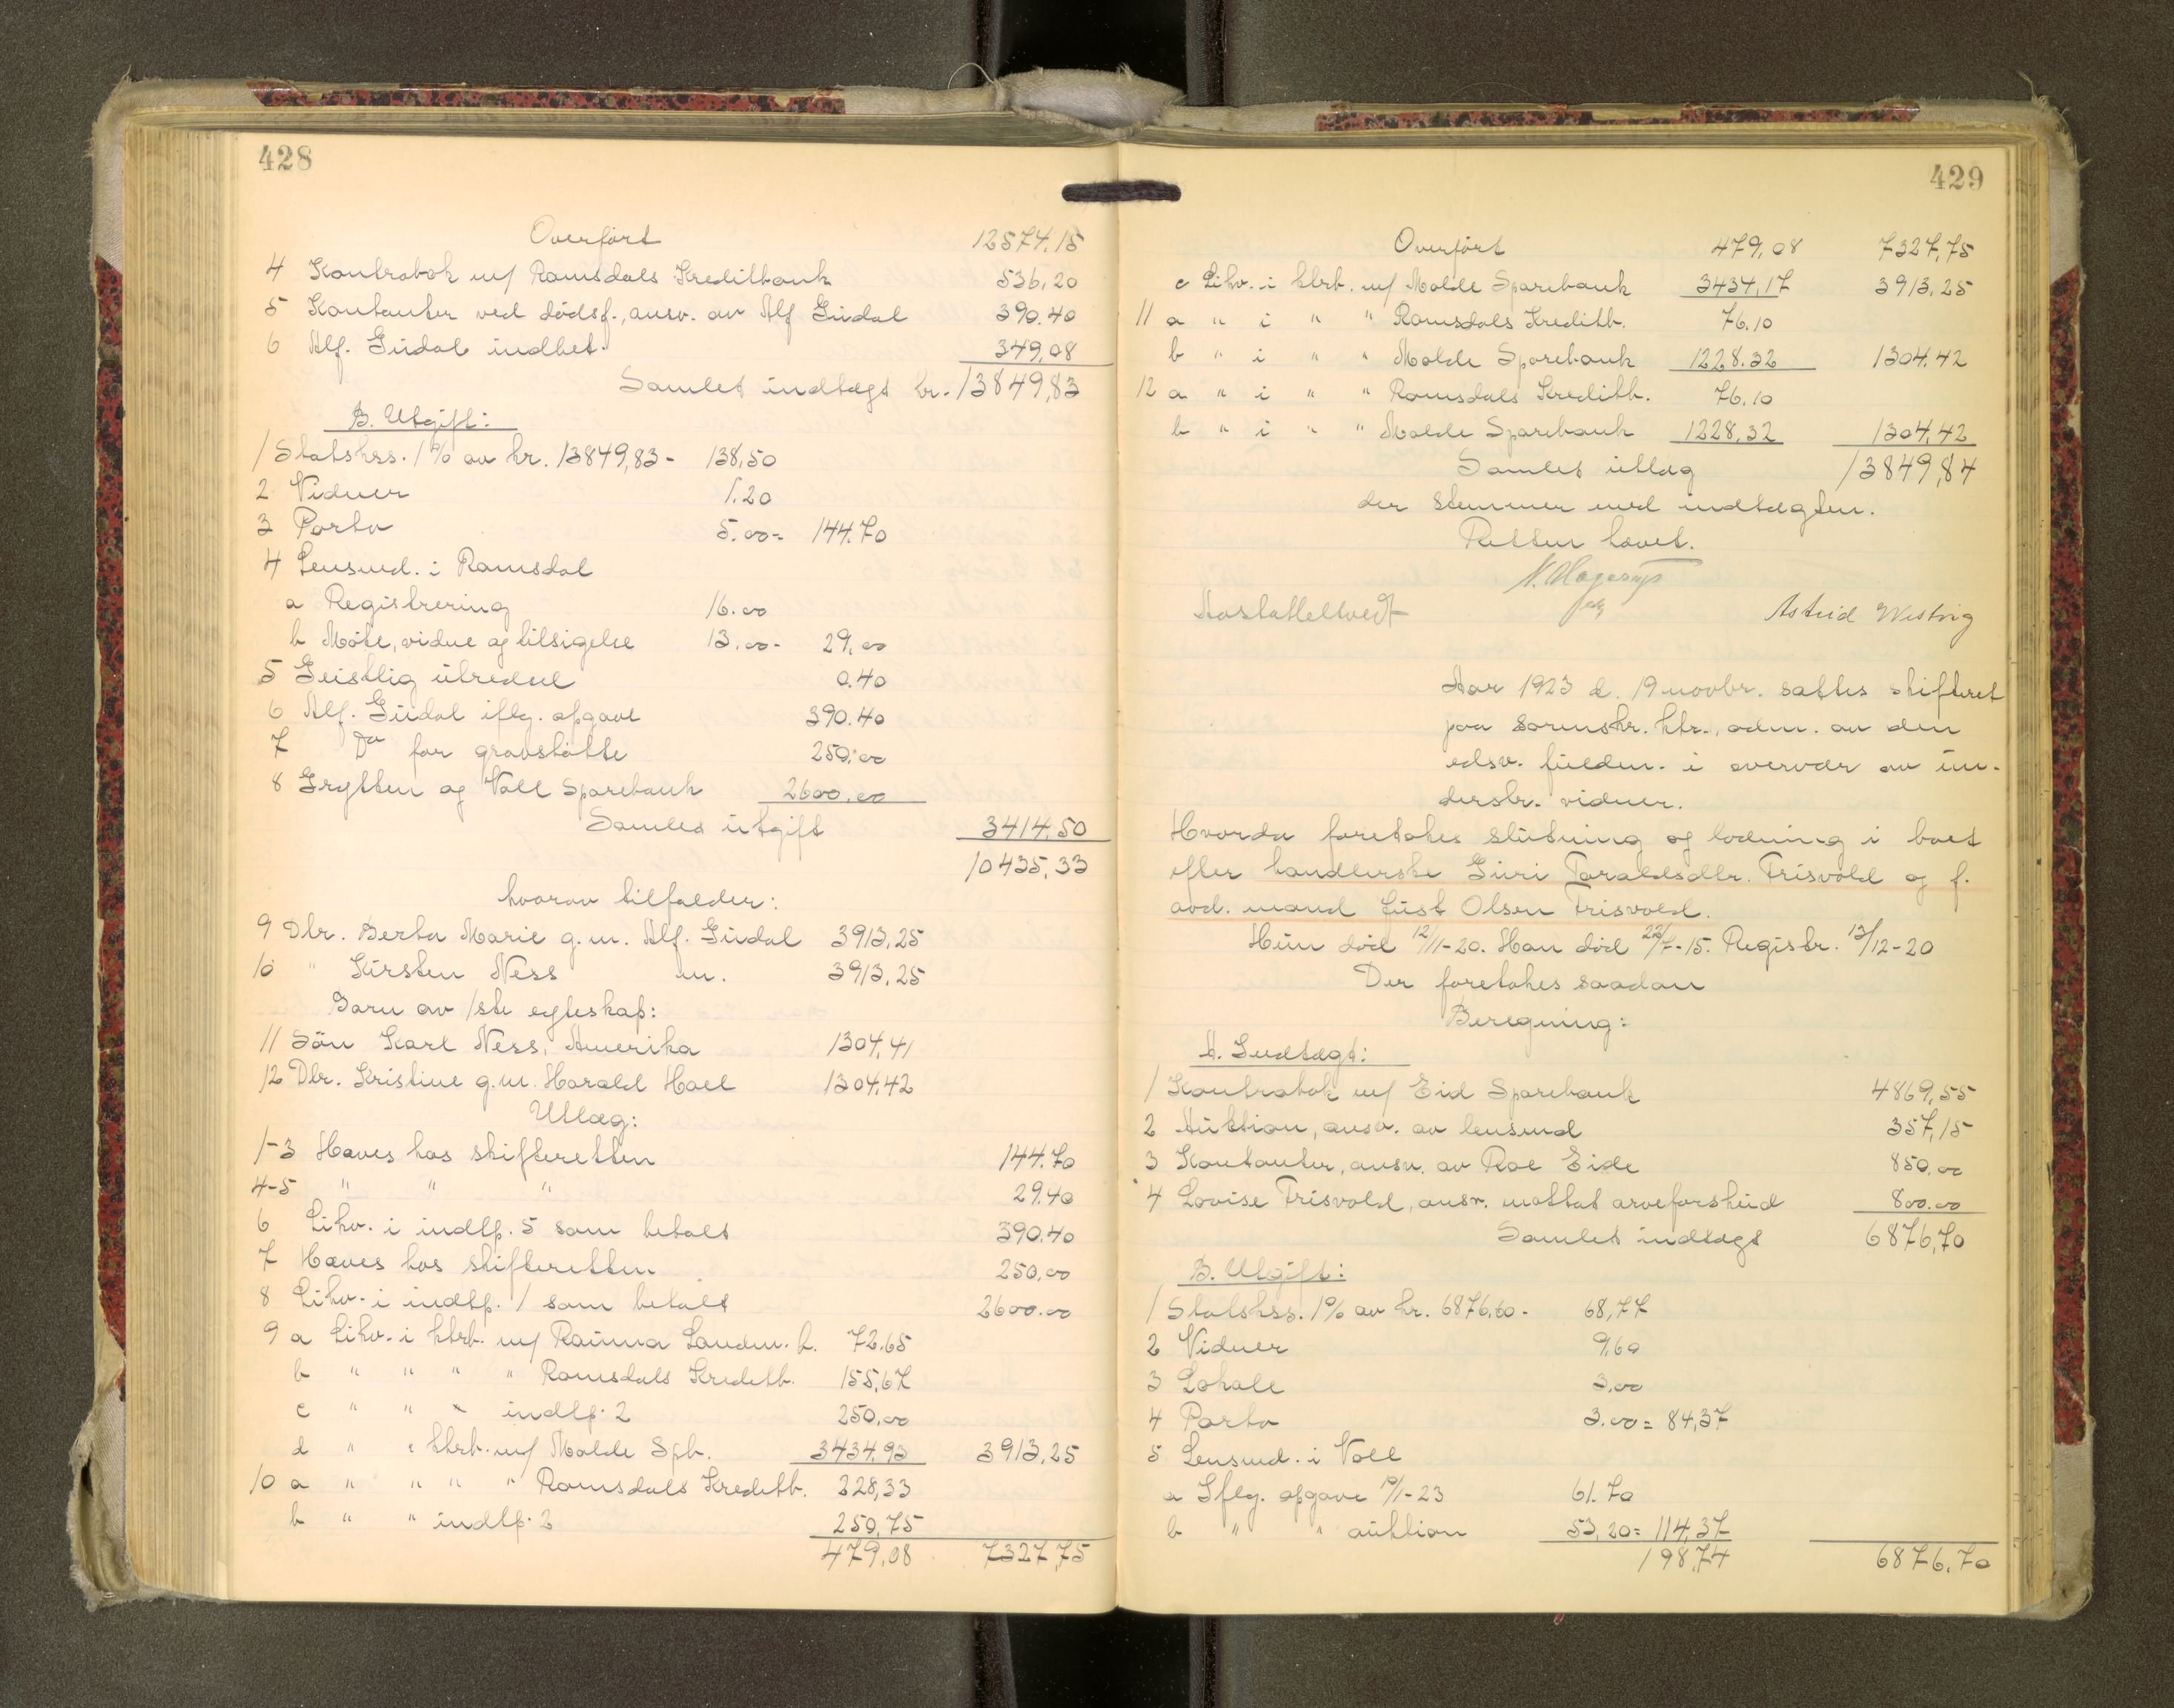 428
Overført 12574.15
4 Kontrabok m/ Romsdals Kreditbank 536,20
5 Kontanter ved dødsf., ansv. av Alf Gudal 390.40
6 Alf. Gudal indbet. 349,08
Samlet indtægt kr. 13849,83
B. Utgift:
1 Statskss. 1% av kr. 13849,83 - 138,50
2 Vidner 1.20
3 Porto 5.00 = 144.70
4 Lensmd. i Romsdal
a Registrering 16.00
b Møte, vidne og tilsigelse 13.00 - 29,00
5 Geistlig utredsel 0.40
6 Alf. Gudal iflg. opgave 390.40
7 Do for gravstøtte 250.00
8 Grytten og Voll Sparebank 2600.00
Samlet utgift 3414.50
10435,33
hvorav tilfalder:
9 Dtr. Berta Marie g.m. Alf. Gudal 3913,25
10 " Kirsten Ness m. 3913,25
Barn av 1ste egteskap:
11 Søn Karl Ness, Amerika 1304,41
12 Dtr. Kristine g.m. Harald Hoel 1304,42
Utlæg:
1-3 Hæves hos skifteretten 144.70
4-5 " " " 29.40
6 Likv. i indtp. 5 som betalt 390.40
7 Hæves hos skifteretten 250,00
8 Likv. i indtp. 1 som betalt 2600.00
9 a Likv. i ktrb. m/ Rauma Landm. b. 72.65
b " " " " Romsdals Kreditb. 155,67
c " " " indtp. 2 250,00
d " " ktrb. m/ Molde Spb. 3434.93 3913,25
10 a " " " " Romsdals Kreditb. 228,33
b " " indtp. 2 250,75
479,08 7327,75
429
Overført 479,08 7327,75
c Likv. i ktrb. m/ Molde Sparebank 3434,17 3913,25
11 a " i " " Romsdals Kreditb. 76.10
b " i " " Molde Sparebank 1228.32 1304.42
12 a " i " " Romsdals Kreditb. 76.10
b " i " " Molde Sparebank 1228,32 1304,42
Samlet utlæg 13849,84
der stemmer med indtægten.
Retten hævet.
N. Hagerup
Aasta Heltvedt Astrid Westvig
Aar 1923 d. 19 novbr. sattes skifteret
paa sorenskr. ktr., adm. av den
edsv. fuldm. i overvær av un-
derskr. vidner.
Hvorda foretokes slutning og lodning i boet
efter handlerske Guri Taraldsdtr. Frisvold og f.
avd. mand Just Olsen Frisvold.
Hun død 12/11-20. Han død 22/7-15. Registr. 13/12-20
Der foretokes saadan
Beregning:
A. Indtægt:
1 Kontrabok m/ Eid Sparebank 4869,55
2 Auktion, ansv. av lensmd 357,15
3 Kontanter, ansv. av Roe Eide 850.00
4 Lovise Frisvold, ansv. mottat arveforskud 800.00
Samlet indtægt 6876,70
B. Utgift:
1 Statskss. 1% av kr. 6876,60 - 68,77
2 Vidner 9,60
3 Lokale 3,00
4 Porto 3.00 = 84,37
5 Lensmd. i Voll
a Iflg. opgave 19/1-23 61.70
b " " auktion 53,20 = 114,37
198,74 6876.70